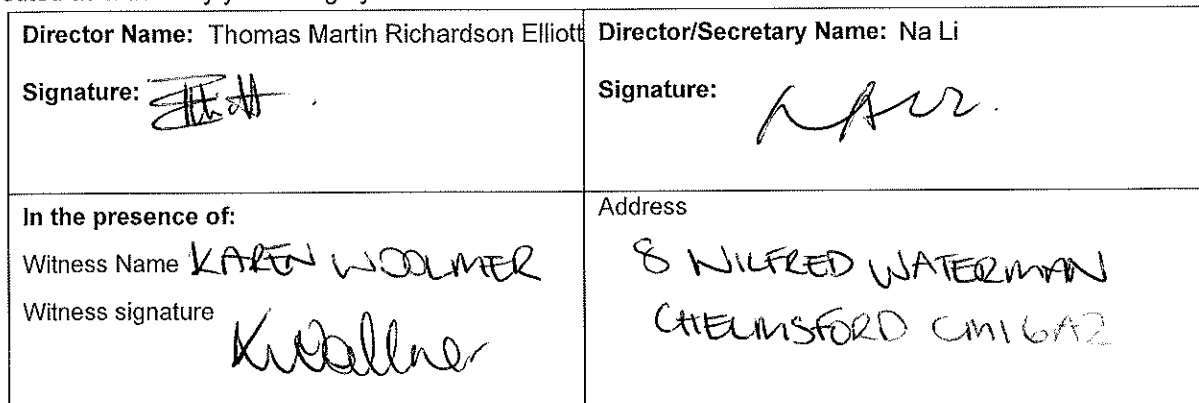 Director Name: Thomas Martin Richardson Elliott
Signature: Elliott
Director/Secretary Name: Na Li
Signature:
In the presence of:
Witness Name KAREN WOOLMER
Witness signature
Address
8 WILFRED WATERMAN
CHELMSFORD CM1 6AZ